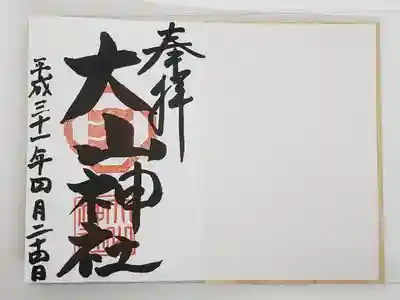 奉拝
大山神社
平成三十一年四月二十四日